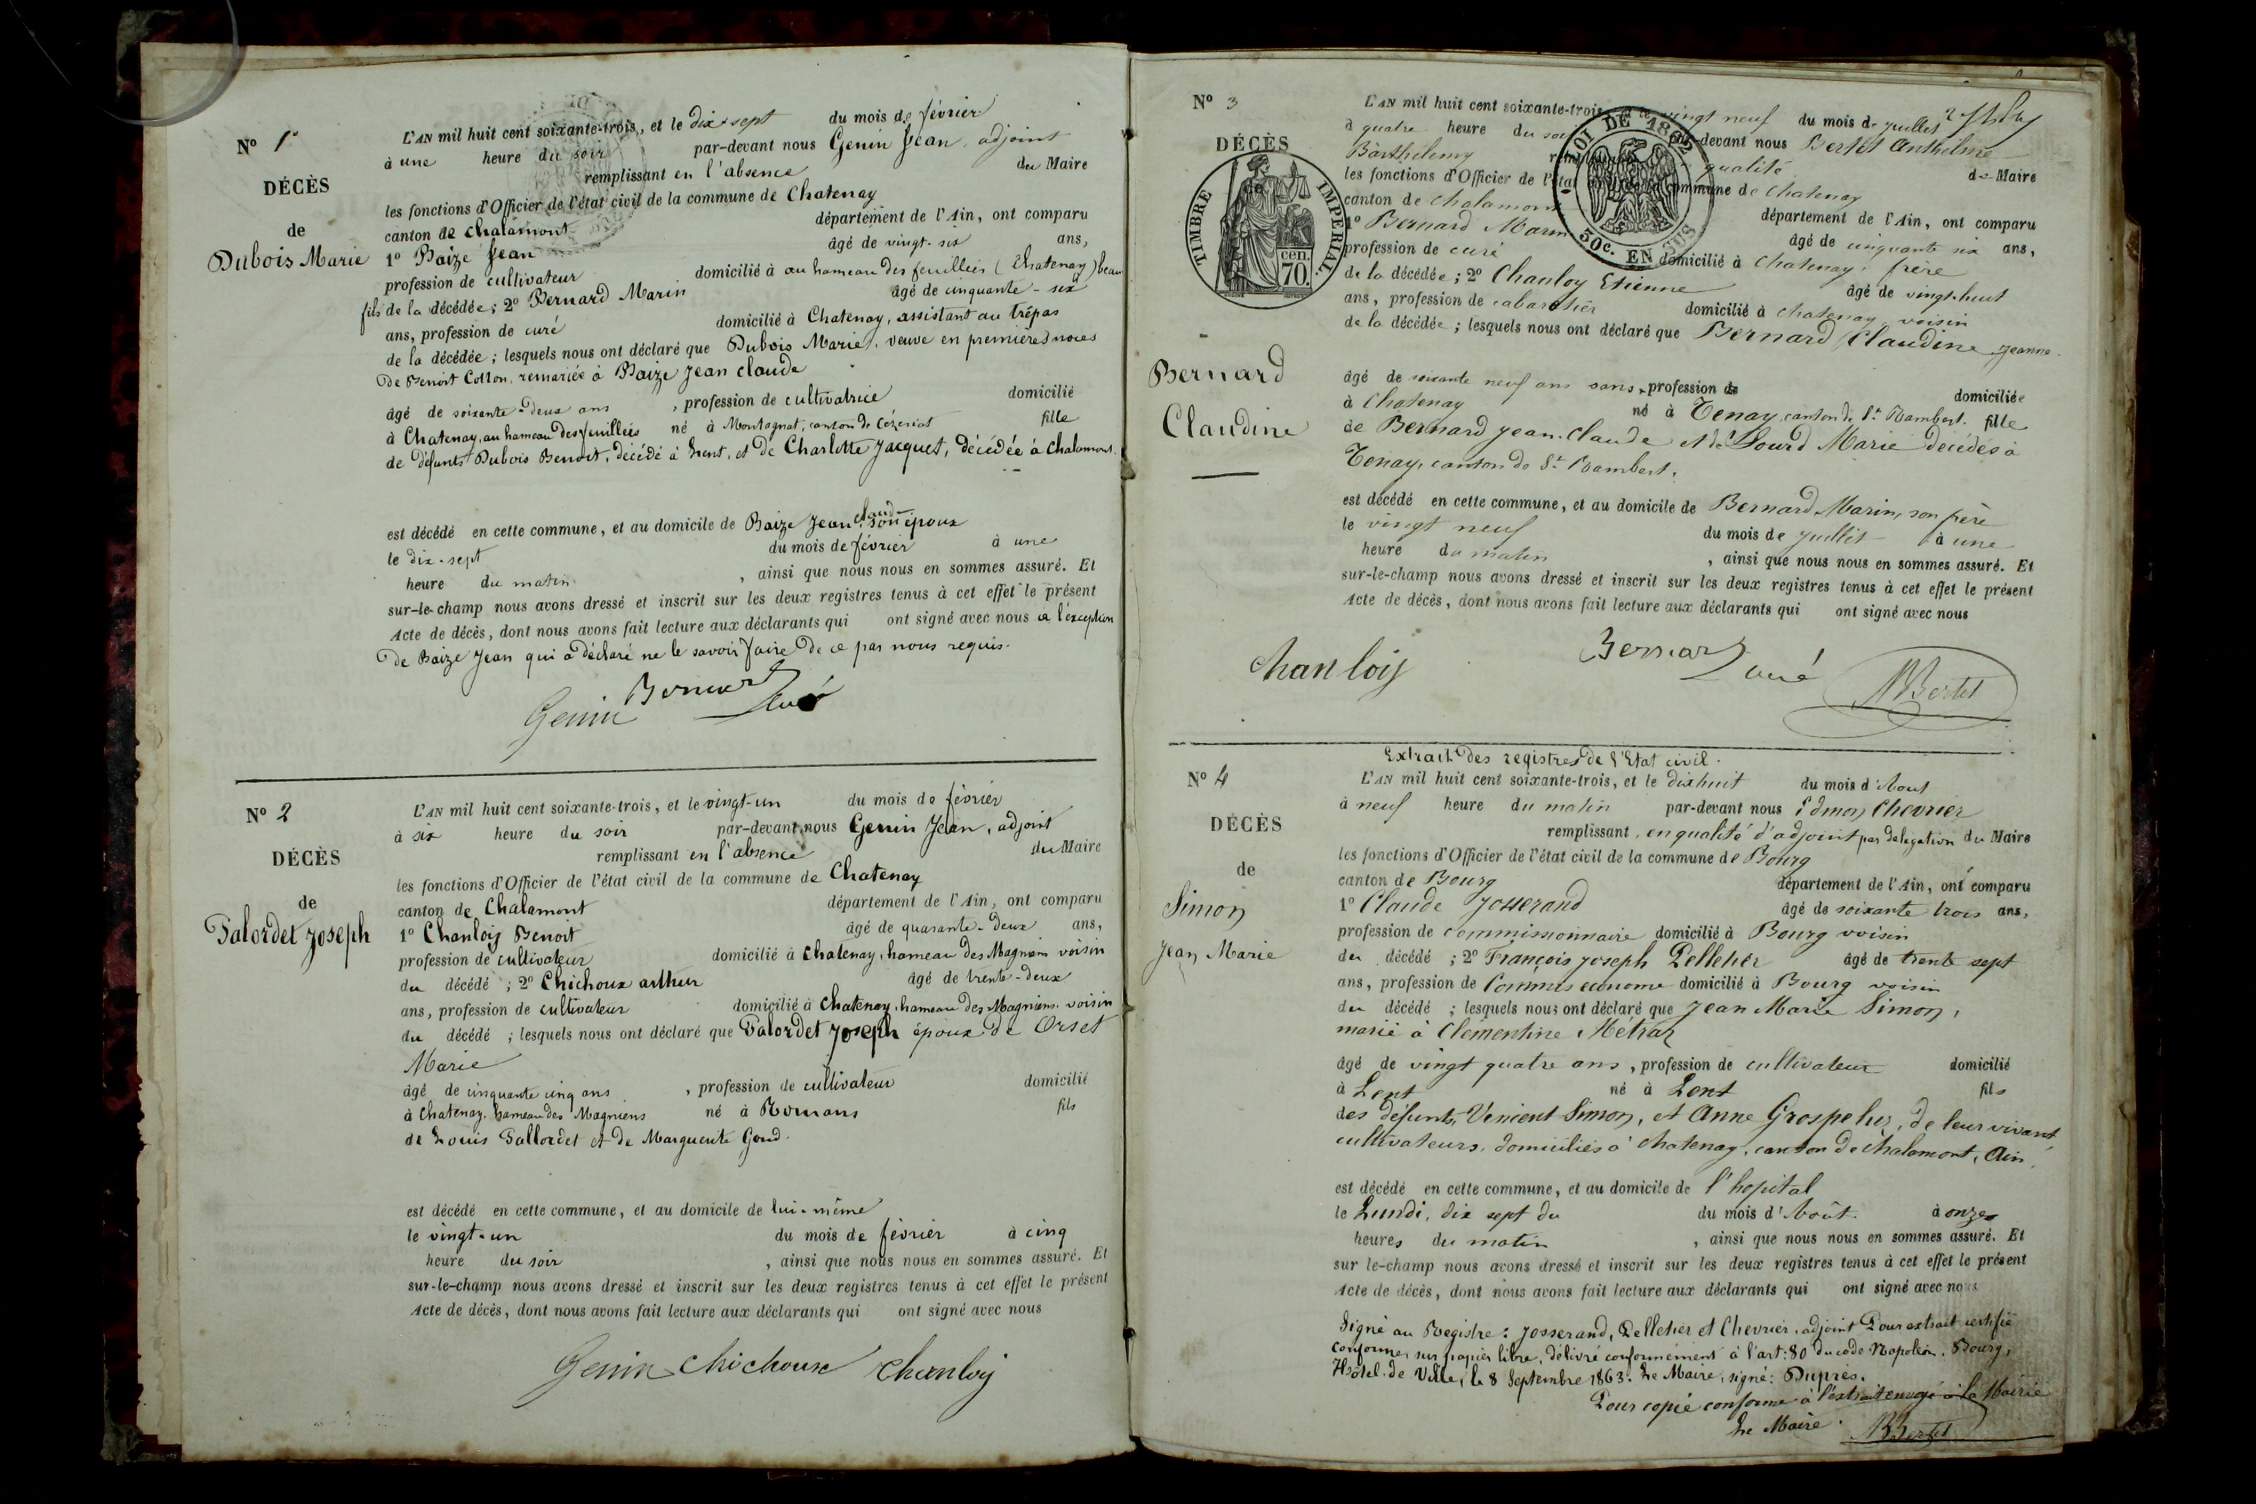 N° 1er
DÉCÈS
de
Dubois Marie
L'AN mil huit cent soixante-trois, et le dix-sept du mois de février
à une heure du soir par-devant nous Genin Jean, adjoint
remplissant en l'absence du Maire
les fonctions d'Officier de l'état civil de la commune de Chatenay
canton de Chalamont département de l'Ain, ont comparu
1° Baize Jean âgé de vingt-six ans,
profession de cultivateur domicilié à au hameau des feuillées (Chatenay) beau
fils de la décédée; 2° Bernard Marin âgé de cinquante-six
ans, profession de curé domicilié à Chatenay, assistant au trépas
de la décédée; lesquels nous ont déclaré que Dubois Marie, veuve en premières noces
De Benoit Collon, remariée à Baize Jean Claude
âgé de soixante-deux ans, profession de cultivatrice domicilié
à Chatenay, au hameau des feuillées né à Montagnat, canton de Cézeriat fille
de défunts Dubois Benoit, décédé à Lent, et de Charlotte Jacquet, décédée à Chalamont.
est décédé en cette commune, et au domicile de Baize Jean Claude son époux
le dix-sept du mois de février à une
heure du matin, ainsi que nous nous en sommes assuré. Et
sur-le-champ nous avons dressé et inscrit sur les deux registres tenus à cet effet le présent
Acte de décès, dont nous avons fait lecture aux déclarants qui ont signé avec nous à l'exception
De Baize Jean qui a déclaré ne le savoir faire De ce par nous requis.
Genin Bernard curé
N° 2
DÉCÈS
de
Palordet Joseph
L'AN mil huit cent soixante-trois, et le vingt-un du mois de février
à six heure du soir par-devant nous Genin Jean, adjoint
remplissant en l'absence du Maire
les fonctions d'Officier de l'état civil de la commune de Chatenay
canton de Chalamont département de l'Ain, ont comparu
1° Chanloy Benoit âgé de quarante-deux ans,
profession de cultivateur domicilié à Chatenay, hameau des Magniens voisin
du décédé; 2° Chichoux arthur âgé de trente-deux
ans, profession de cultivateur domicilié à Chatenay, hameau des Magniens. voisin
du décédé; lesquels nous ont déclaré que Palordet Joseph époux de Orset
Marie
âgé de cinquante cinq ans, profession de cultivateur domicilié
à Chatenay, hameau des Magniens né à Romans fils
de Louis Pallordet et de Marguerite Goud.
est décédé en cette commune, et au domicile de lui-même
le vingt-un du mois de février à cinq
heure du soir, ainsi que nous nous en sommes assuré. Et
sur-le-champ nous avons dressé et inscrit sur les deux registres tenus à cet effet le présent
Acte de décès, dont nous avons fait lecture aux déclarants qui ont signé avec nous
Genin Chichoux Chanloy
N° 3
DÉCÈS
TIMBRE IMPÉRIAL.
70. cen.
LOI DE 1862
50c. EN SUS
Bernard
Claudine
L'AN mil huit cent soixante-trois, et le vingt neuf du mois de juillet
à quatre heure du soir par-devant nous Bertet Anthelme
Barthélemy remplissant qualité de Maire
les fonctions d'Officier de l'état civil de la commune de Chatenay
canton de Chalamont département de l'Ain, ont comparu
1° Bernard Marin âgé de cinquante six ans,
profession de curé domicilié à Chatenay, frère
de la décédée; 2° Chanloy Etienne âgé de vingt-huit
ans, profession de cabaretier domicilié à Chatenay voisin
de la décédée; lesquels nous ont déclaré que Bernard Claudine Jeanne.
âgé de soixante neuf ans sans profession de domiciliée
à Chatenay né à Tenay, canton de St Rambert. fille
de Bernard Jean-Claude et de Lourd Marie décédés à
Tenay, canton de St Rambert.
est décédé en cette commune, et au domicile de Bernard Marin, son frère
le vingt neuf du mois de juillet à une
heure du matin, ainsi que nous nous en sommes assuré. Et
sur-le-champ nous avons dressé et inscrit sur les deux registres tenus à cet effet le présent
Acte de décès, dont nous avons fait lecture aux déclarants qui ont signé avec nous
Chanloy Bernard curé ABBertet
Extrait des registres de l'Etat civil.
N° 4
DÉCÈS
de
Simon
Jean Marie
L'AN mil huit cent soixante-trois, et le dix huit du mois d'Aout
à neuf heure du matin par-devant nous Edmon Chevrier
remplissant, en qualité d'adjoint par délégation du Maire
les fonctions d'Officier de l'état civil de la commune de Bourg
canton de Bourg département de l'Ain, ont comparu
1° Claude Josserand âgé de soixante trois ans,
profession de commissionnaire domicilié à Bourg voisin
du décédé; 2° François Joseph Pelletier âgé de trente sept
ans, profession de Commis économe domicilié à Bourg voisin
du décédé; lesquels nous ont déclaré que Jean Marie Simon,
marié à Clémentine Métraz
âgé de vingt quatre ans, profession de cultivateur domicilié
à Lent né à Lent fils
des défunts Vincent Simon, et Anne Grospelier, de leur vivant
cultivateurs, domiciliés à Chatenay, canton de Chalamont, Ain.
est décédé en cette commune, et au domicile de l'hopital
le Lundi, dix sept du du mois d'Août. à onze
heures du matin, ainsi que nous nous en sommes assuré. Et
sur le-champ nous avons dressé et inscrit sur les deux registres tenus à cet effet le présent
Acte de décès, dont nous avons fait lecture aux déclarants qui ont signé avec nous
Signé au Registre: Josserand, Pelletier et Chevrier, adjoint Pour extrait certifié
conforme, sur papier libre, délivré conformément à l'art: 80 du code Napoléon. Bourg,
Hôtel-de Ville, le 8 Septembre 1863. Le Maire, signé: Duprès.
Pour copie conforme à l'extrait envoyé à la Mairie
Le Maire. ABBertet